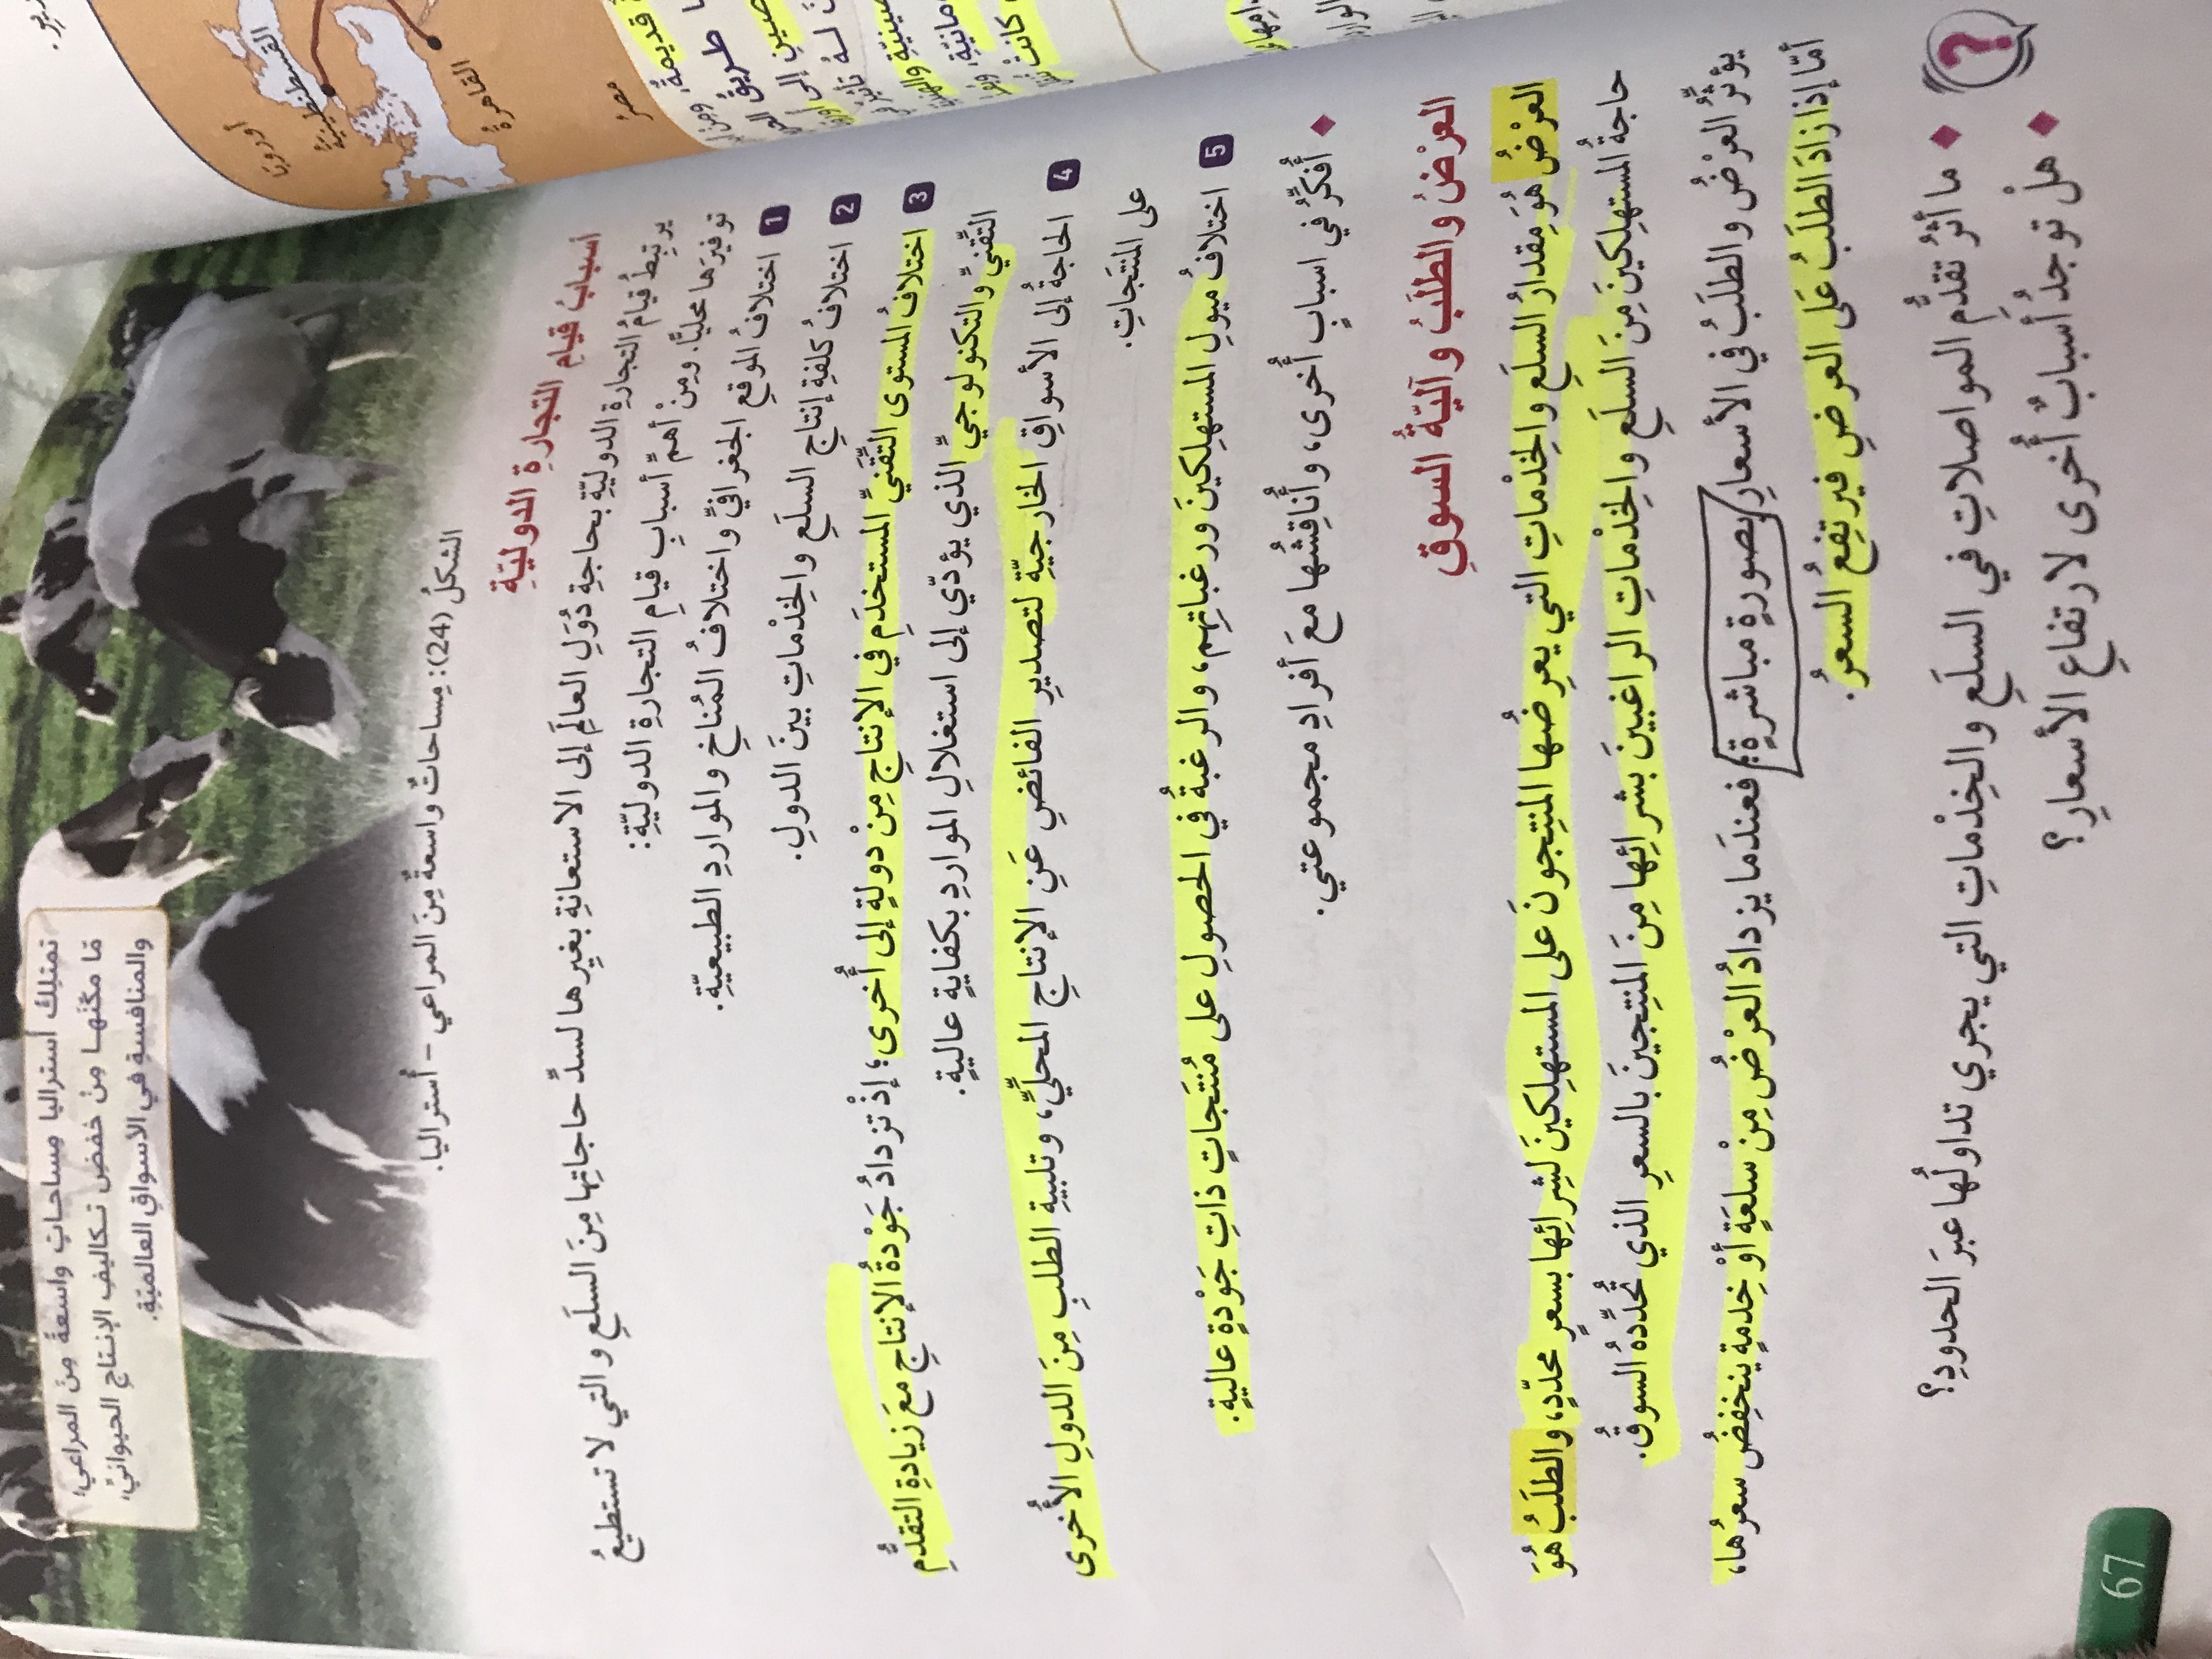 تمتلِكُ أُستراليا مِساحاتٍ واسعةً مِنَ المراعي؛
مّا مكّنَها مِنْ خفضِ تكاليفِ الإنتاجِ الحيوانيِّ،
والمنافسةِ في الأسواقِ العالميّةِ.
الشكلُ (24): مِساحاتٌ واسعةٌ مِنَ المراعي – أُستراليا.
أسبابُ قيامِ التجارةِ الدوليّةِ
يرتبِطُ قيامُ التجارةِ الدوليّةِ بحاجةِ دُوَلِ العالَمِ إلى الاستعانةِ بغيرِها لسدِّ حاجاتِها مِنَ السلَعِ والتي لا تستطيعُ
توفيرَها محليًّا. ومِنْ أهمِّ أسبابِ قيامِ التجارةِ الدوليّةِ:
1 اختلافُ الموقعِ الجغرافيِّ واختلافُ المُناخِ والمواردِ الطبيعيّةِ.
2 اختلافُ كلفةِ إنتاجِ السلَعِ والخِدْماتِ بينَ الدولِ.
3 اختلافُ المستوى التِّقَنيِّ المستخدَمِ في الإنتاجِ مِنْ دولةٍ إلى أُخرى؛ إذْ تزدادُ جَوْدةُ الإنتاجِ معَ زيادةِ التقدُّمِ
التِّقَنيِّ والتكنولوجيِّ الذي يؤدّي إلى استغلالِ المواردِ بكفايةٍ عاليةٍ.
4 الحاجةُ إلى الأسواقِ الخارجيّةِ لتصديرِ الفائضِ عَنِ الإنتاجِ المحليِّ، وتلبيةِ الطلبِ مِنَ الدولِ الأُخرى
على المنتَجاتِ.
5 اختلافُ ميولِ المستهلِكينَ ورغباتِهِم، والرغبةُ في الحصولِ على مُنتَجاتٍ ذاتِ جَوْدةٍ عاليةٍ.
◆ أُفكّرُ في اسبابٍ أُخرى، وأُناقِشُها معَ أفرادِ مجموعتي.
العرْضُ والطلَبُ وآليّةُ السوقِ
العرْضُ هُوَ مِقدارُ السلَعِ والخِدْماتِ التي يعرِضُها المنتِجونَ على المستهلِكينَ لشرائِها بسعرٍ محدّدٍ، والطلَبُ هُوَ
حاجةُ المستهلِكينَ مِنَ السلَعِ والخِدْماتِ الراغبينَ بشرائِها مِنَ المنتِجينَ بالسعرِ الذي تُحدِّدهُ السوقُ.
يؤثّرُ العرْضُ والطلَبُ في الأسعارِ بصورةٍ مباشرةٍ؛ فعندَما يزدادُ العرْضُ مِنْ سلعَةٍ أوْ خِدمةٍ ينخفِضُ سعرُها،
أمّا إذا زادَ الطلَبُ عَلى العرضِ فيرتفِعُ السعرُ.
◆ ما أثرُ تقدُّمِ المواصلاتِ في السلَعِ والخِدْماتِ التي يجري تداولُها عبرَ الحدودِ؟
◆ هلْ توجدُ أسبابٌ أُخرى لارتفاعِ الأسعارِ؟
67
أوروبّا
القسطنطينيّةُ
القاهرةُ
مصرُ